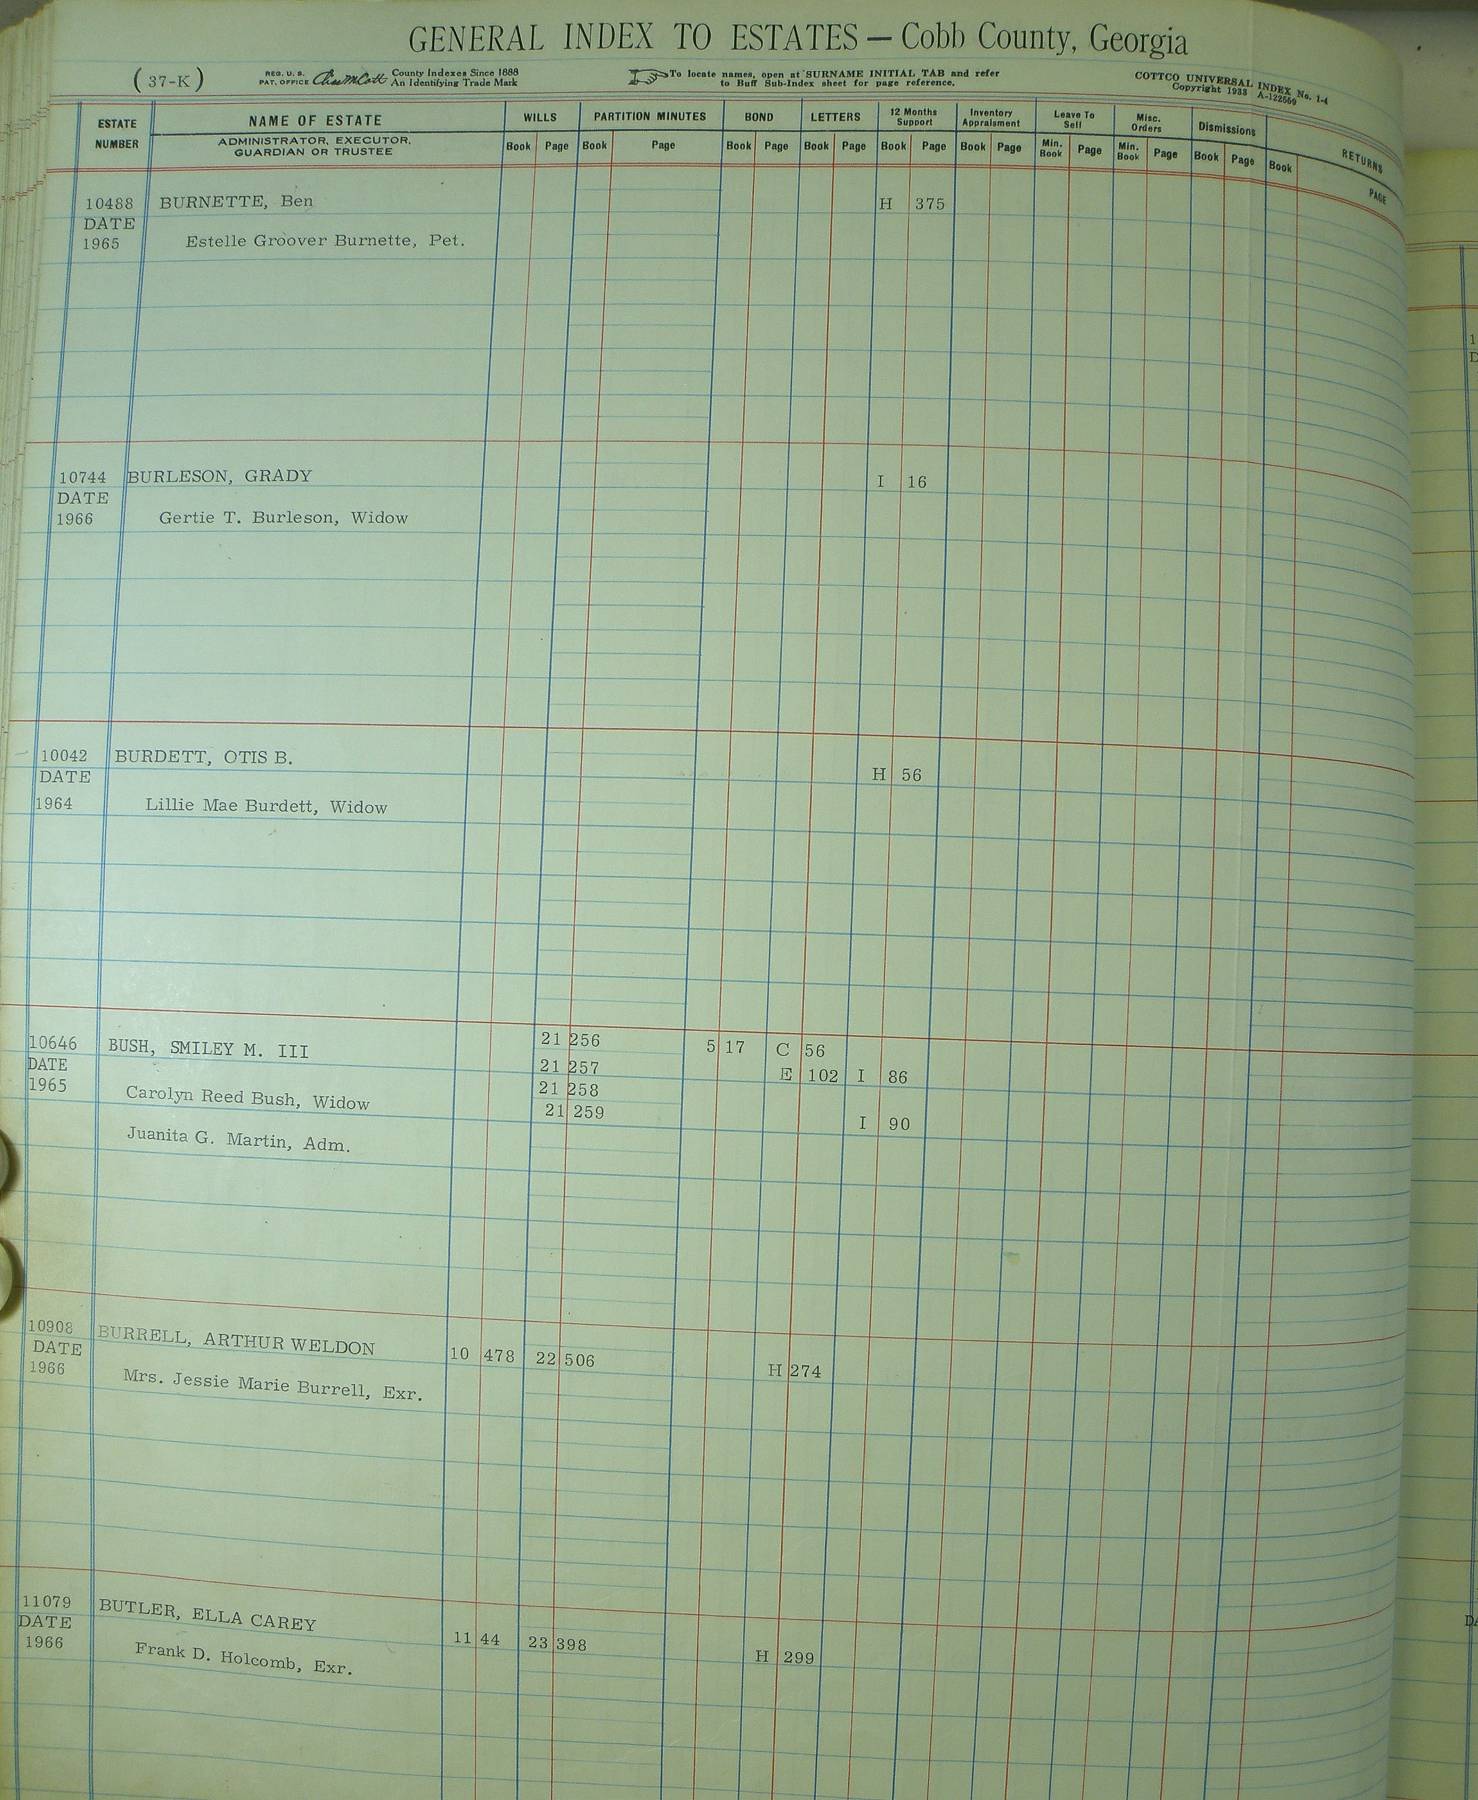 GENERAL INDEX TO ESTATES — Cobb County, Georgia
( 37-K )
REG. U. S. PAT. OFFICE
County Indexes Since 1888
An Identifying Trade Mark
To locate names, open at SURNAME INITIAL TAB and refer
to Buff Sub-Index sheet for page reference.
COTTCO UNIVERSAL INDEX No. 1-4
Copyright 1938 A-122569
ESTATE NUMBER
NAME OF ESTATE
ADMINISTRATOR, EXECUTOR, GUARDIAN OR TRUSTEE
WILLS PARTITION MINUTES BOND LETTERS 12 Months Support Inventory Appraisment Leave To Sell Misc. Orders Dismissions RETURNS
Book Page Book Page Book Page Book Page Book Page Book Page Min. Book Page Min. Book Page Book Page Book PAGE
10488 BURNETTE, Ben H 375
DATE
1965 Estelle Groover Burnette, Pet.
10744 BURLESON, GRADY I 16
DATE
1966 Gertie T. Burleson, Widow
10042 BURDETT, OTIS B.
DATE H 56
1964 Lillie Mae Burdett, Widow
10646 BUSH, SMILEY M. III 21 256 5 17 C 56
DATE 21 257 E 102 I 86
1965 Carolyn Reed Bush, Widow 21 258
21 259 I 90
Juanita G. Martin, Adm.
10908 BURRELL, ARTHUR WELDON 10 478 22 506 H 274
DATE
1966 Mrs. Jessie Marie Burrell, Exr.
11079 BUTLER, ELLA CAREY
DATE 11 44 23 398 H 299
1966 Frank D. Holcomb, Exr.